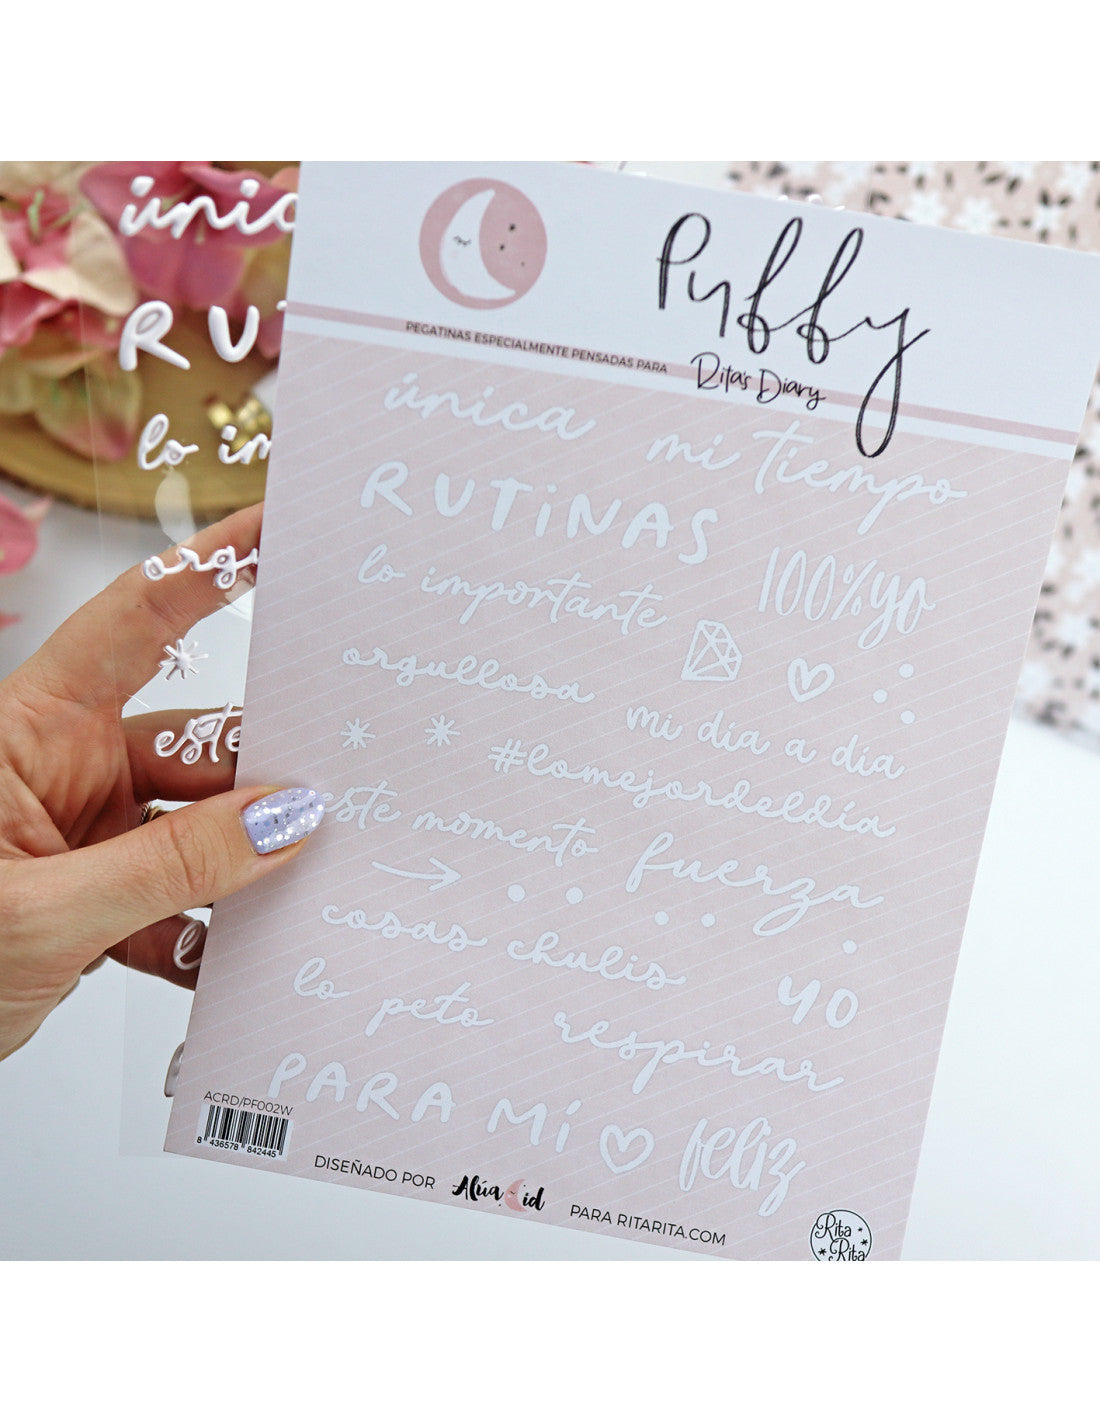 únic
RUT
lo im
orgu
este
Puffy
PEGATINAS ESPECIALMENTE PENSADAS PARA
Rita's Diary
única
mi tiempo
RUTiNAS
100%yo
lo importante
orgullosa
mi día a día
#lomejordeldía
este momento
fuerza
cosas chulis
yo
lo peto
respirar
PARA Mí
feliz
ACRD/PF002W
8 436578 842445
DISEÑADO POR Alúa Cid PARA RITARITA.COM
Rita
Rita